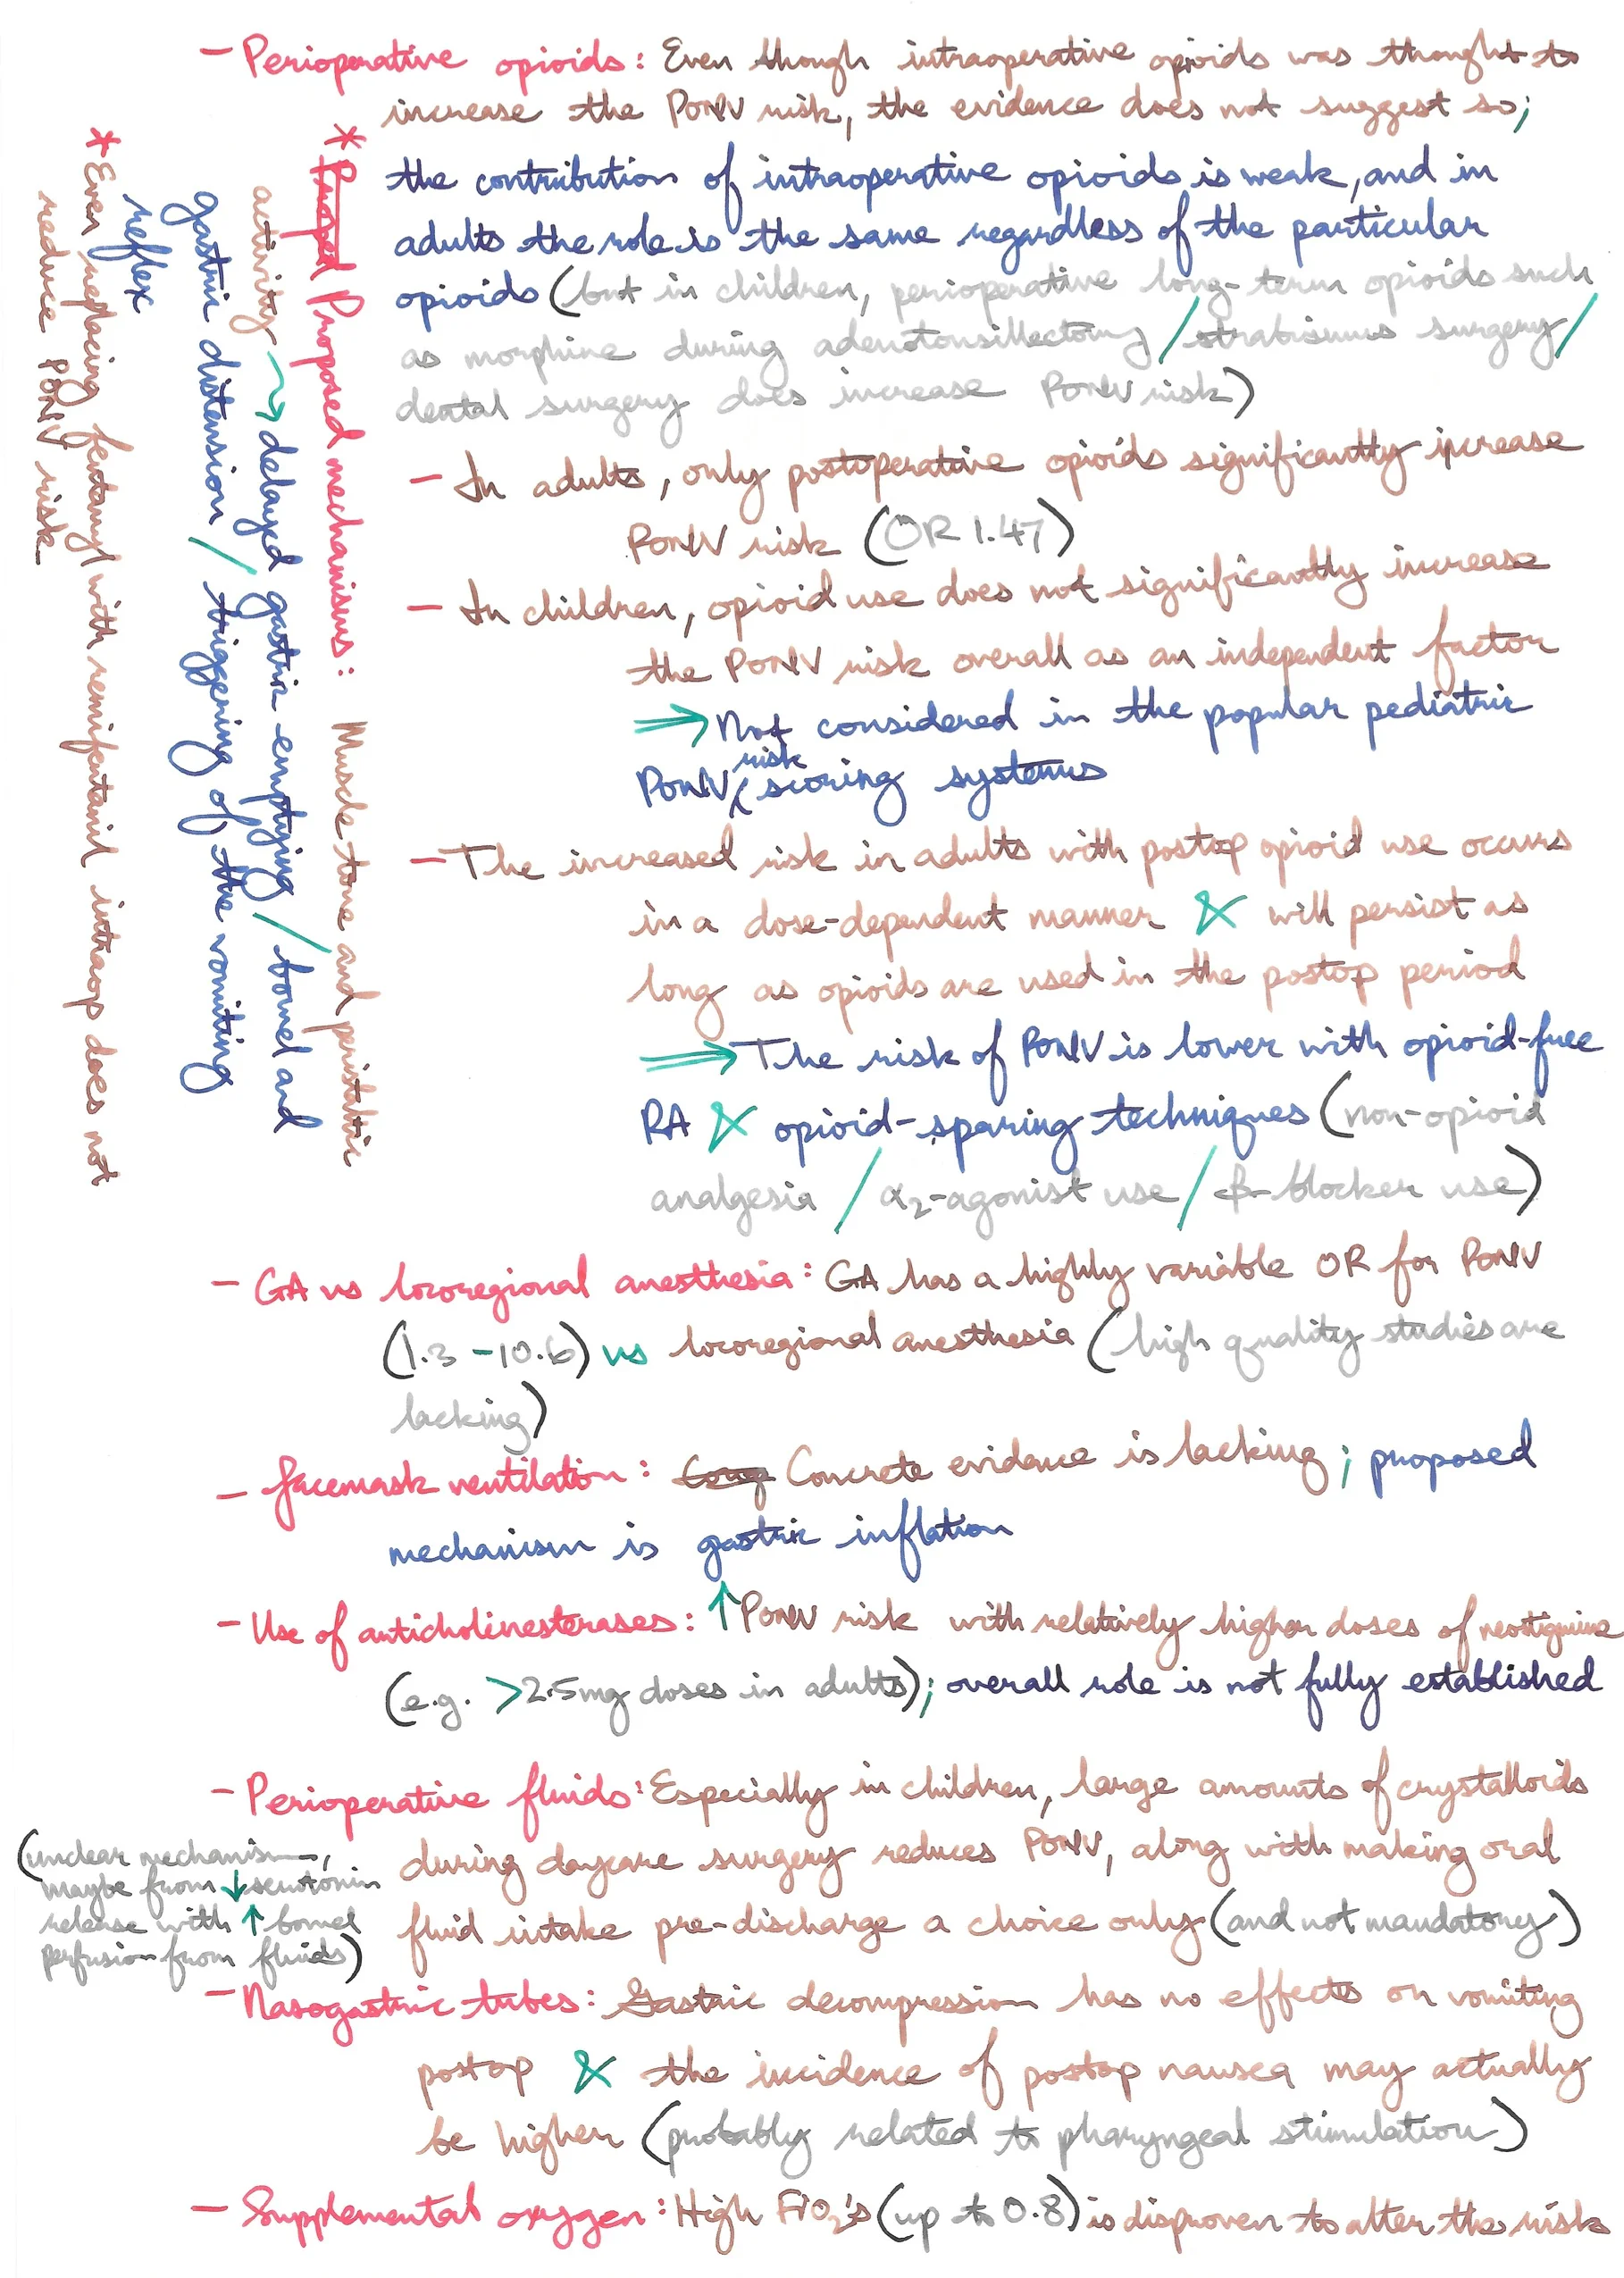 - Perioperative opioids: Even though intraoperative opioids was thought to
increase the PONV risk, the evidence does not suggest so;
the contribution of intraoperative opioids is weak, and in
adults the role is the same regardless of the particular
opioids (but in children, perioperative long-term opioids such
as morphine during adenotonsillectomy / strabismus surgery /
dental surgery does increase PONV risk)
- In adults, only postoperative opioids significantly increase
PONV risk (OR 1.47)
- In children, opioid use does not significantly increase
the PONV risk overall as an independent factor
⇒ Not considered in the popular pediatric
PONV risk scoring systems
- The increased risk in adults with postop opioid use occurs
in a dose-dependent manner & will persist as
long as opioids are used in the postop period
⇒ The risk of PONV is lower with opioid-free
RA & opioid-sparing techniques (non-opioid
analgesia / α2-agonist use / β-blocker use)
* Proposed mechanisms: Muscle tone and peristaltic
activity → delayed gastric emptying / bowel and
gastric distension / triggering of the vomiting
reflex
* Even replacing fentanyl with remifentanil intraop does not
reduce PONV risk
- GA vs locoregional anesthesia: GA has a highly variable OR for PONV
(1.3 - 10.6) vs locoregional anesthesia (high quality studies are
lacking)
- Facemask ventilation: Concrete evidence is lacking; proposed
mechanism is gastric inflation
- Use of anticholinesterases: ↑ PONV risk with relatively higher doses of neostigmine
(e.g. >2.5mg doses in adults); overall role is not fully established
- Perioperative fluids: Especially in children, large amounts of crystalloids
during daycare surgery reduces PONV, along with making oral
fluid intake pre-discharge a choice only (and not mandatory)
(unclear mechanism,
maybe from ↓ serotonin
release with ↑ bowel
perfusion from fluids)
- Nasogastric tubes: Gastric decompression has no effects on vomiting
postop & the incidence of postop nausea may actually
be higher (probably related to pharyngeal stimulation)
- Supplemental oxygen: High FiO2's (up to 0.8) is disproven to alter the risk